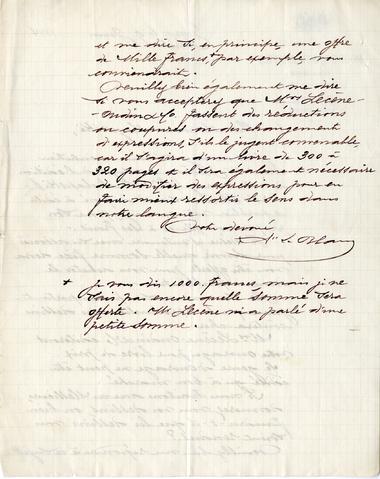 et me dire si, en principe, une offre
de Mille Francs + par exemple, vous
conviendrait.
Veuillez bien également me dire
si vous acceptez que Mrs Lecène-
Oudin & Co fassent des réductions
ou coupures ou des changement
d'expressions, s'ils le jugent convenable,
car il s'agira d'un livre de 300 à
320 pages et il sera également nécessaire
de modifier des expressions pour en
faire mieux ressortir le sens dans
notre langue.
Votre dévoué
+ Je vous dis 1000 francs mais je ne
sais pas encore quelle somme sera
offerte. Mr Lecène m'a parlé d'une
petite somme.